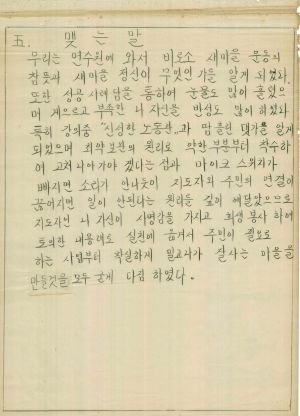 五. 맺는 말
우리는 연수원에 와서 비로소 새마을 운동의
참뜻과 새마을 정신이 무엇인가를 알게 되었다.
또한 성공사례담을 통하여 눈물도 많이 흘렸으
며 게으르고 부족한 나 자신을 반성도 많이 하였다
특히 강의중 "신성한 노동관"과 땀흘린 댓가를 알게
되었으며 최약보완의 원리로 약한 부분부터 착수하
여 고쳐 나아가야 겠다는 점과 마이크 스위치가
빠지면 소리가 안나듯이 지도자와 주민의 연결이
끊어지면 일이 안된다는 원리를 깊이 깨달았으므로
지도자인 나 자신이 사명감을 가지고 희생봉사 하여
토의한 내용대로 실천에 옮겨서 주민이 필요로
하는 사업부터 착실하게 밀고나가 잘사는 마을을
만들것을 모두 굳게 다짐 하였다.